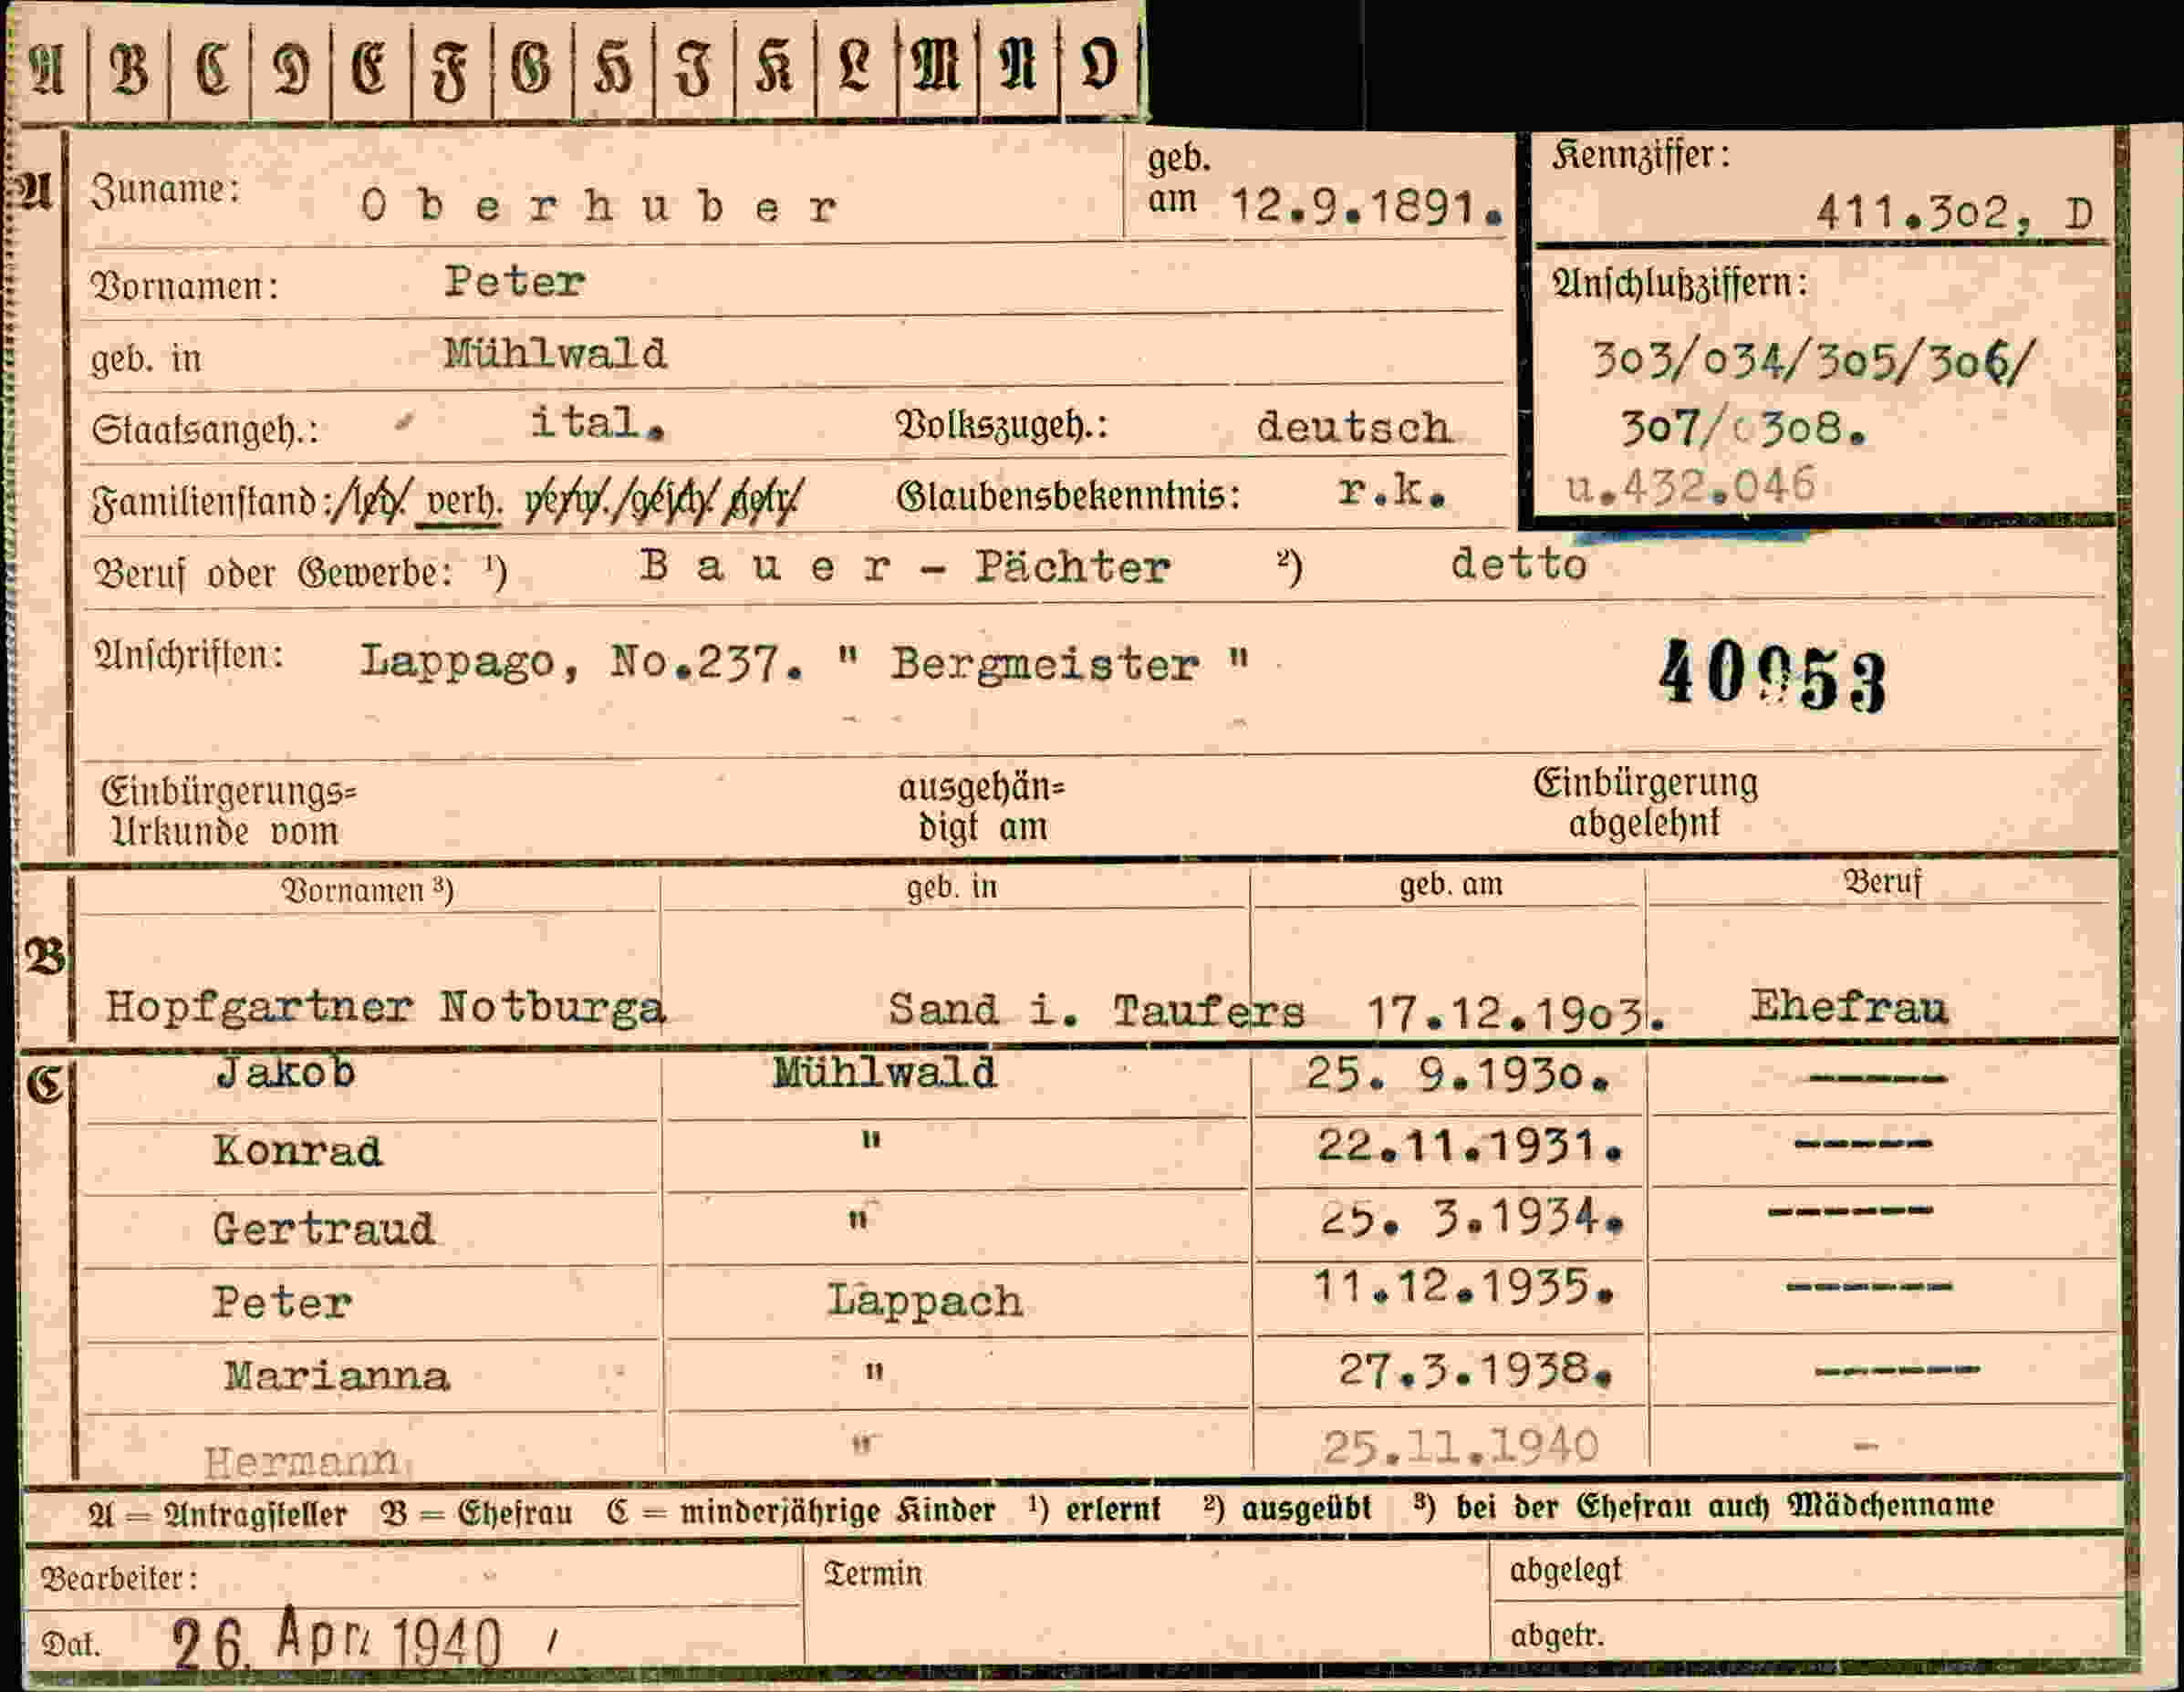 A B C D E F G H J K L M N O
A Zuname: Oberhuber geb. am 12.9.1891. Kennziffer: 411.302, D
Vornamen: Peter Anschlußziffern:
geb. in Mühlwald 303/034/305/306/
Staatsangeh.: ital. Volkszugeh.: deutsch 307/ 308.
Familienstand: led. verh. verw. gesch. getr. Glaubensbekenntnis: r.k. u.432.046
Beruf oder Gewerbe: ¹) Bauer - Pächter ²) detto
Anschriften: Lappago, No.237. " Bergmeister " 40953
Einbürgerungs= ausgehän= Einbürgerung
Urkunde vom digt am abgelehnt
Vornamen ³) geb. in geb. am Beruf
B
Hopfgartner Notburga Sand i. Taufers 17.12.1903. Ehefrau
C Jakob Mühlwald 25. 9.1930. -----
Konrad " 22.11.1931. -----
Gertraud " 25. 3.1934. ------
Peter Lappach 11.12.1935. ------
Marianna " 27.3.1938. ------
Hermann " 25.11.1940 -
A = Antragsteller B = Ehefrau C = minderjährige Kinder ¹) erlernt ²) ausgeübt ³) bei der Ehefrau auch Mädchenname
Bearbeiter: Termin abgelegt
Dat. 26. Apr. 1940 abgetr.